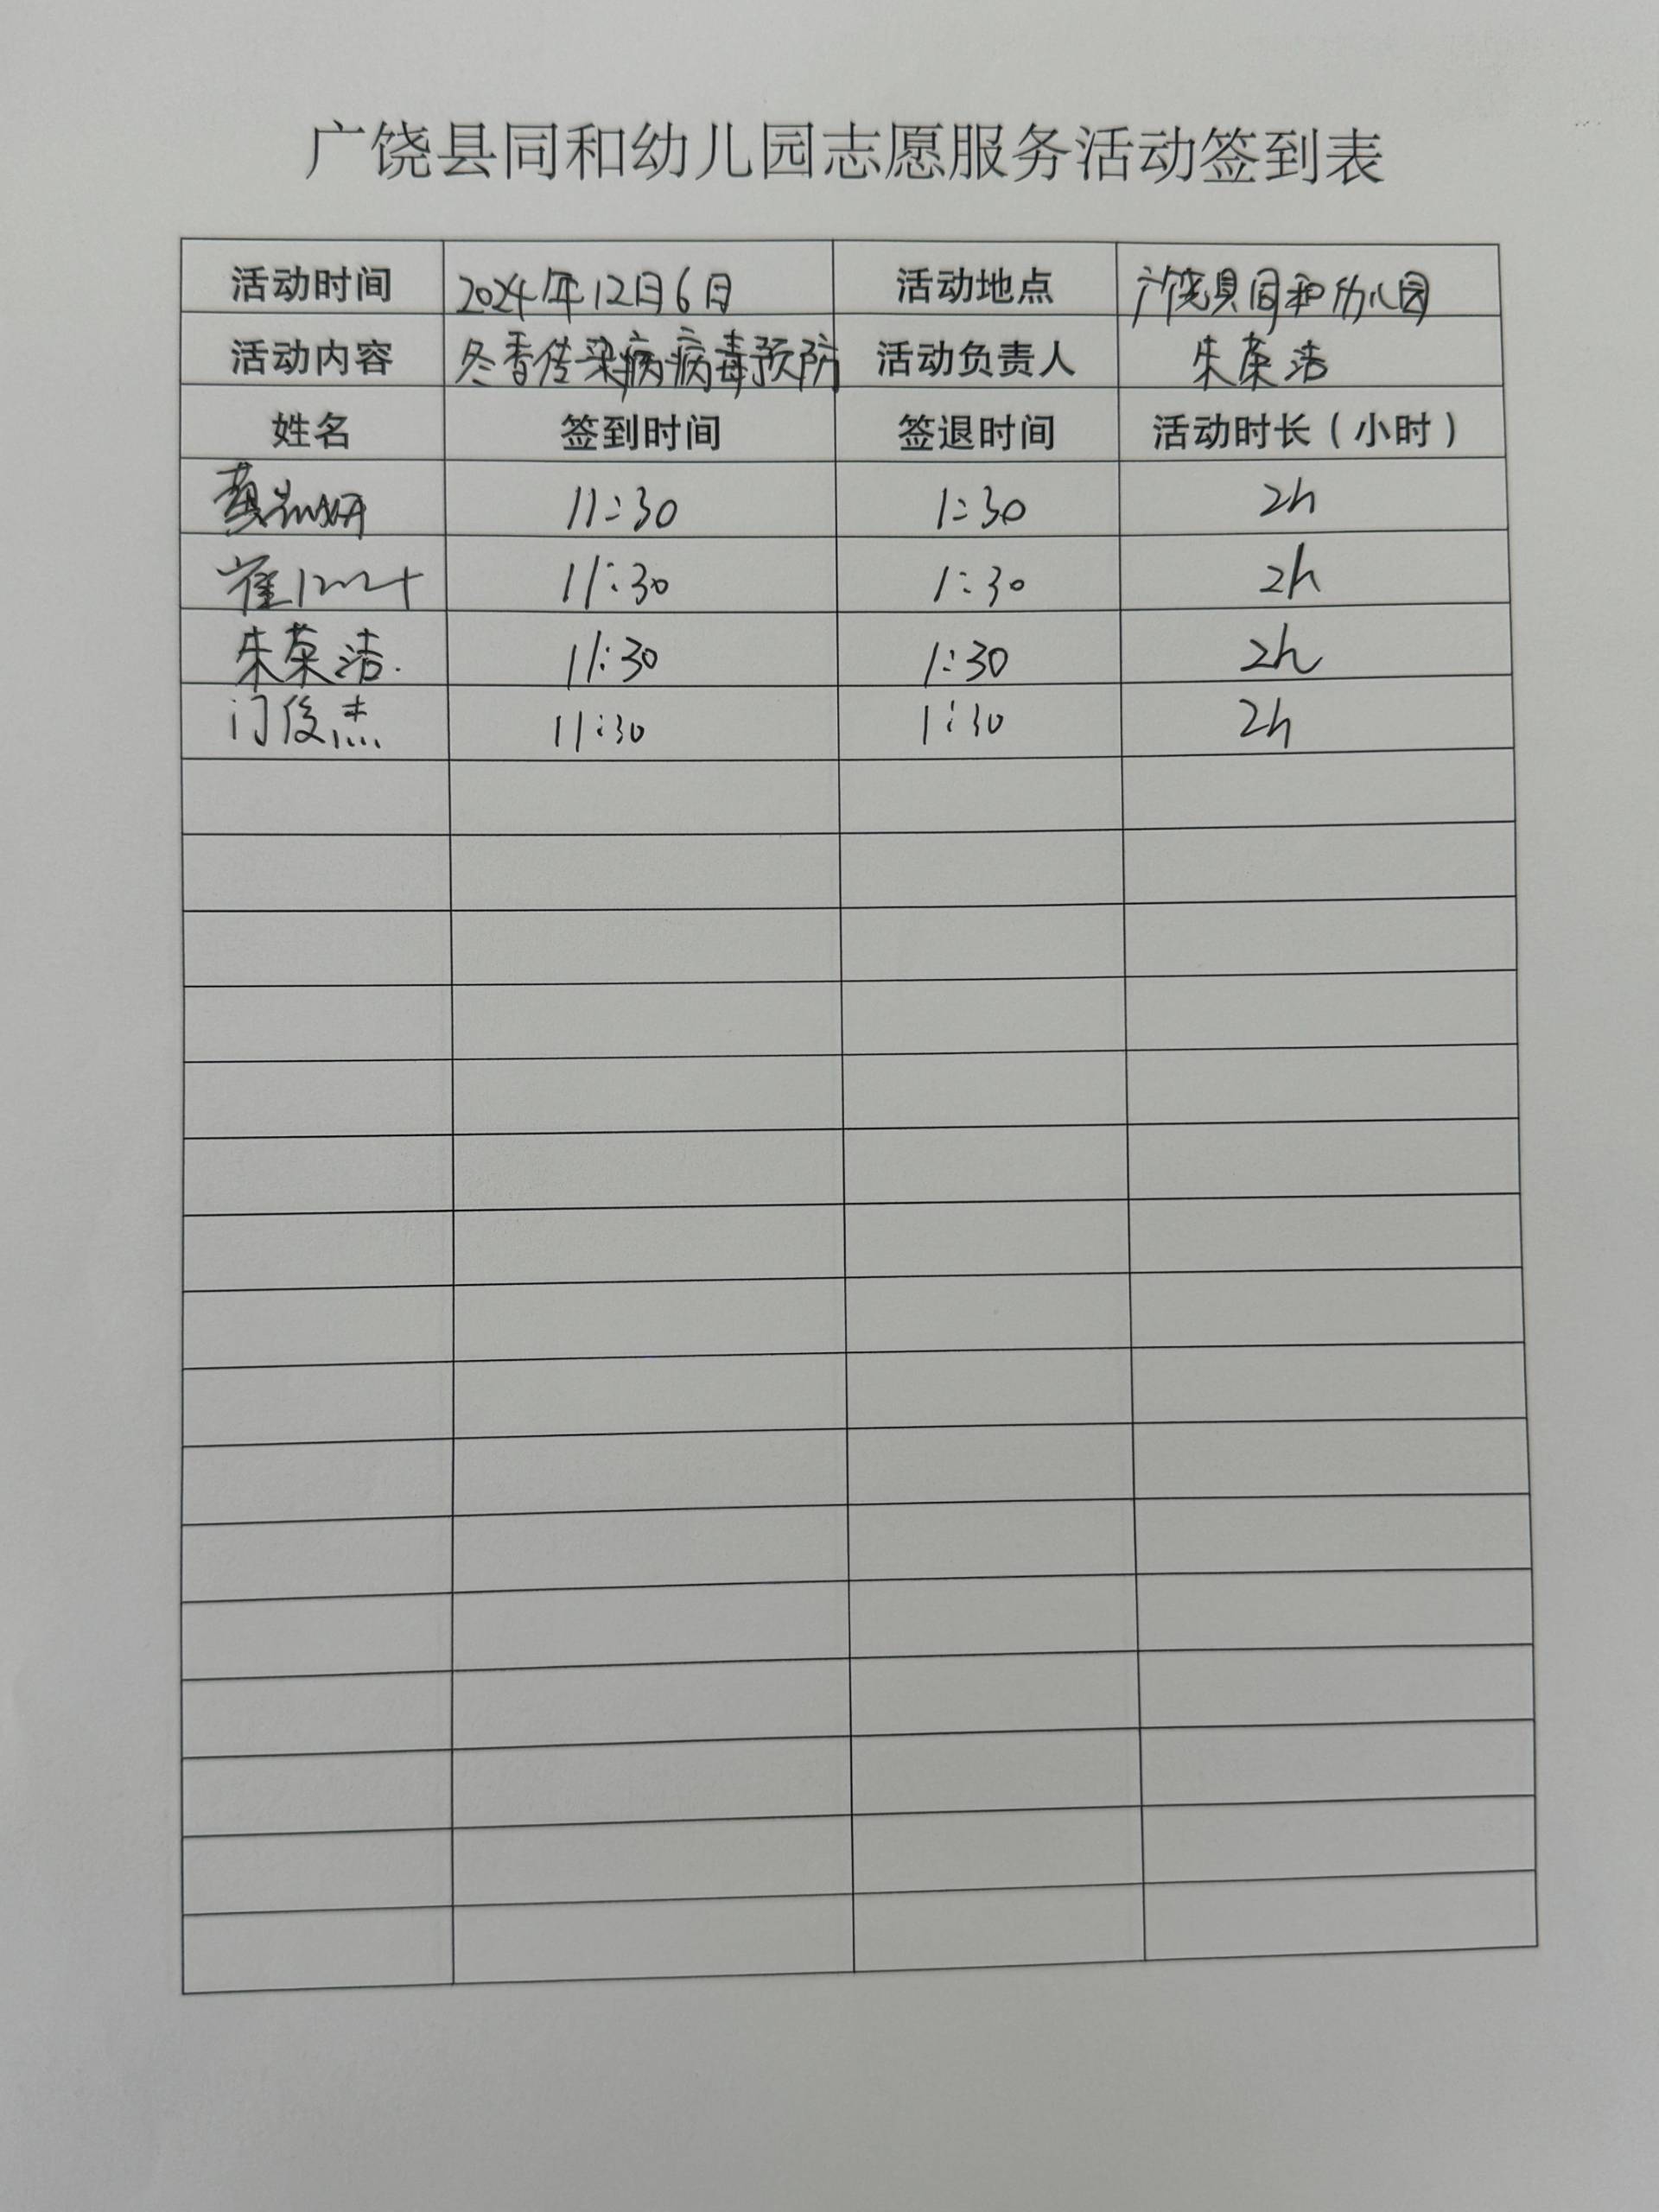 广饶县同和幼儿园志愿服务活动签到表
活动时间 2024年12月6日 活动地点 广饶县同和幼儿园
活动内容 冬春传染病病毒预防 活动负责人 朱荣洁
姓名 签到时间 签退时间 活动时长(小时)
11:30 1:30 2h
崔 11:30 1:30 2h
朱荣洁. 11:30 1:30 2h
门俊杰 11:30 1:30 2h